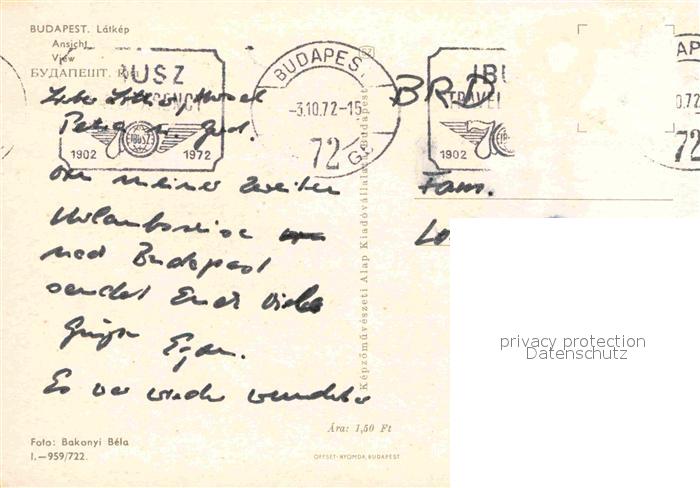 BUDAPEST. Látkép
Ansicht
View
БУДАПЕШТ. Вид
IUSZ
1902 1972
BUDAPEST
-3.10.72-15
72
IBU
TRAVEL
1902
0.72
72
BRD
Petra u. Gud.
Von meiner zweiten
Urlaubsreise
nach Budapest
sendet Euch viele
Grüße Egon.
Es war wieder wunderbar
Fam.
Képzőművészeti Alap Kiadóvállalata, Budapest
privacy protection
Datenschutz
Ára: 1,50 Ft
Foto: Bakonyi Béla
I.—959/722.
OFFSET-NYOMDA, BUDAPEST